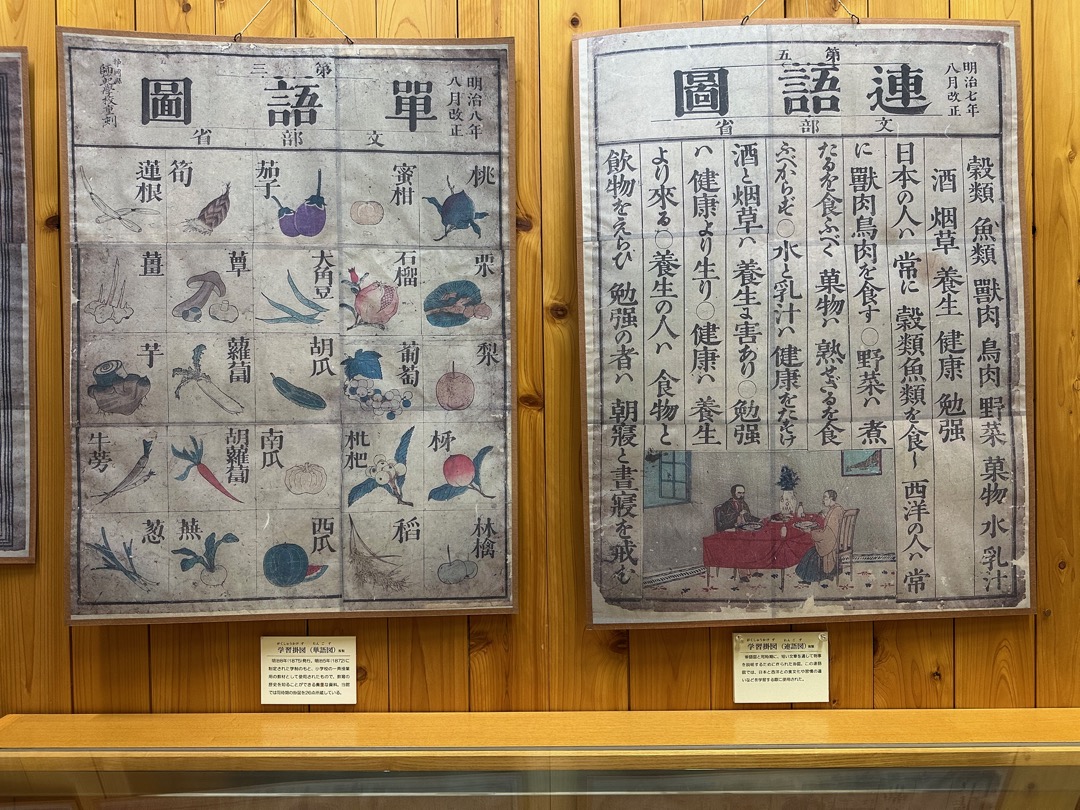 明治八年
八月改正
第三
單語圖
文部省
桃
蜜柑
茄子
筍
蓮根
栗
石榴
大角豆
蕈
薑
梨
葡萄
胡瓜
蘿蔔
芋
柹
枇杷
南瓜
胡蘿蔔
牛蒡
林檎
稻
西瓜
蕪
葱
学習掛図（単語図）複製
明治七年
八月改正
第五
連語圖
文部省
穀類 魚類 獸肉 鳥肉 野菜 菓物 水 乳汁
酒 烟草 養生 健康 勉强
日本の人ハ 常に 穀類魚類を食し 西洋の人ハ 常
に 獸肉鳥肉を食す○野菜ハ 煮
たるを食ふべく 菓物ハ 熟せざるを食
ふべからず○水と乳汁ハ 健康をたすけ
酒と烟草ハ 養生に害あり○勉强
ハ 健康より生り○健康ハ 養生
より來る○養生の人ハ 食物と
飲物をえらひ 勉强の者ハ 朝寢と晝寢を戒む
学習掛図（連語図）複製